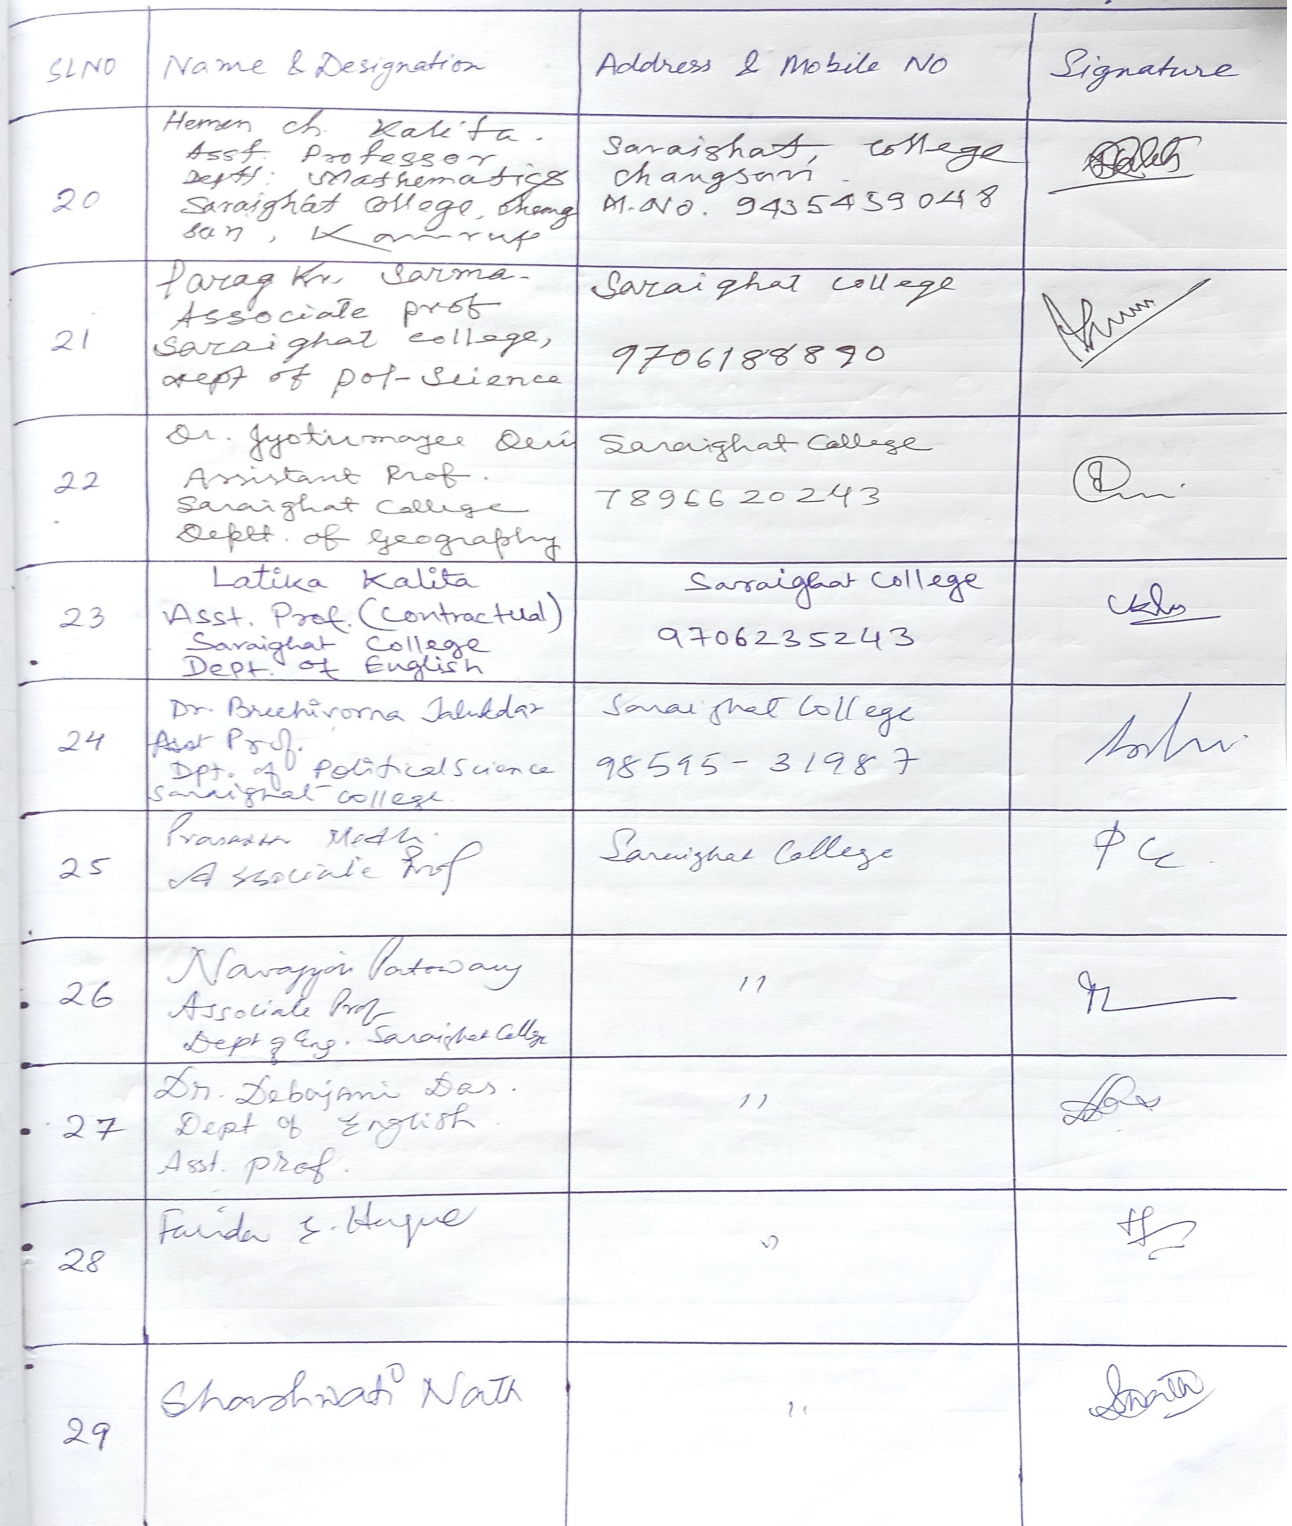 SL NO Name & Designation Address & Mobile No Signature
20
Hemen ch. Kalita.
Asst. Professor
Deptt: Mathematics
Saraighat College, Chang
sari, Kamrup
Saraighat, College
Changsari
M.No. 9435459048
21
Parag Kr. Sarma-
Associate prof
Saraighat college,
Dept of pol-Science
Saraighat college
9706188890
22
Dr. Jyotirmayee Devi
Assistant Prof.
Saraighat College
Deptt. of Geography
Saraighat College
7896620243
23
Latika Kalita
Asst. Prof. (Contractual)
Saraighat College
Dept. of English
Saraighat College
9706235243
24
Dr. Talukdar
Asst Prof.
Dpt. of Political Science
Saraighat College
Saraighat College
98595-31987
25
Associate Prof
Saraighat College
26
Patowary
Associate Prof
Dept of Eng. Saraighat College
"
27
Dr. Debajani Das.
Dept of English
Asst. prof.
"
28
Farida E. Haque
"
29
Shashwati Nath
"